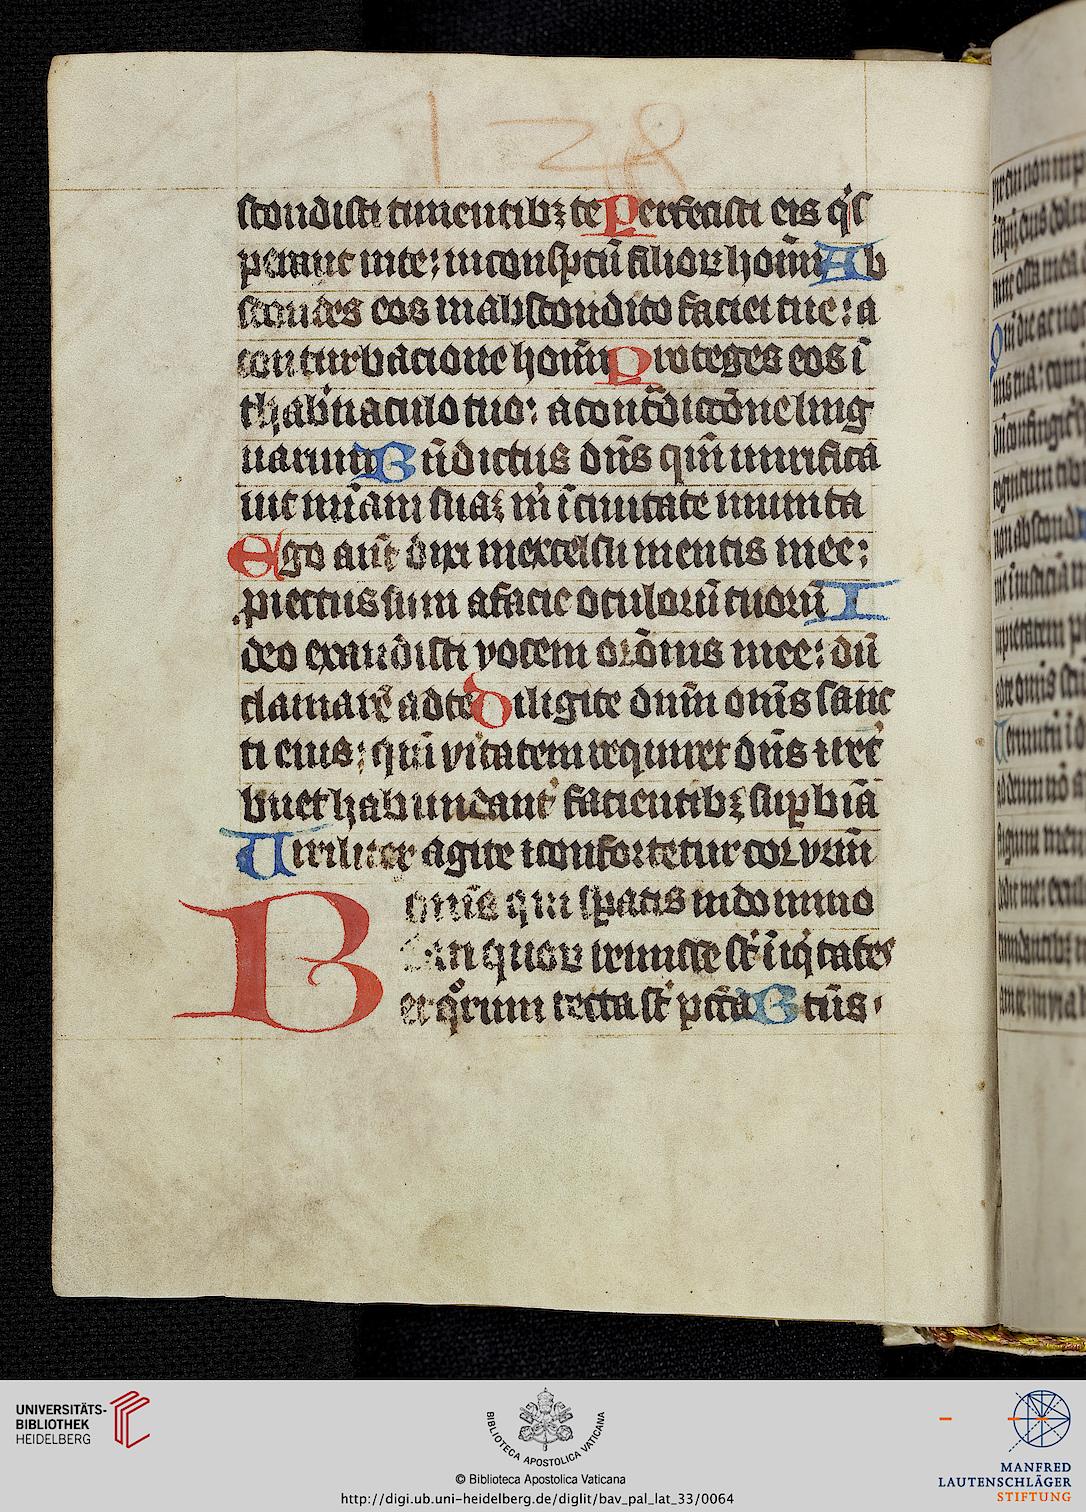 128
scondisti timentibꝫ te Perfecisti eis qͥ s
perant in te: in conspc̄tu filioꝝ homīn Ab
scondes eos in abscondito faciei tue: a
conturbacione homīn Proteges eos ī
thabn̄aculo tuo: a contᷓdicc̄one ling
uarum Bn̄dictus dn̄s qm̄ mirifica
uit mīam suaꝫ m ī ciuitate munita
Ego aūt dixi in excessu mentis mee:
piectus sum a facie oculoꝝ tuorū I
deo exaudisti vocem orōnis mee: dū
clamarē ad te Diligite dn̄m om̄s sanc
ti eius: qm̄ vitatem requiret dn̄s ⁊ ret̄
buet habundant̄ facientibꝫ supbiā
Viriliter agite ⁊ confortetur cor vr̄m
B
om̄s qui spatis in domino
eati quoꝝ remisse st̄ īiqͥtates
et qͦrum tecta st̄ pctā Btūs
UNIVERSITÄTS-
BIBLIOTHEK
HEIDELBERG
BIBLIOTECA APOSTOLICA VATICANA
© Biblioteca Apostolica Vaticana
http://digi.ub.uni-heidelberg.de/diglit/bav_pal_lat_33/0064
MANFRED
LAUTENSCHLÄGER
STIFTUNG